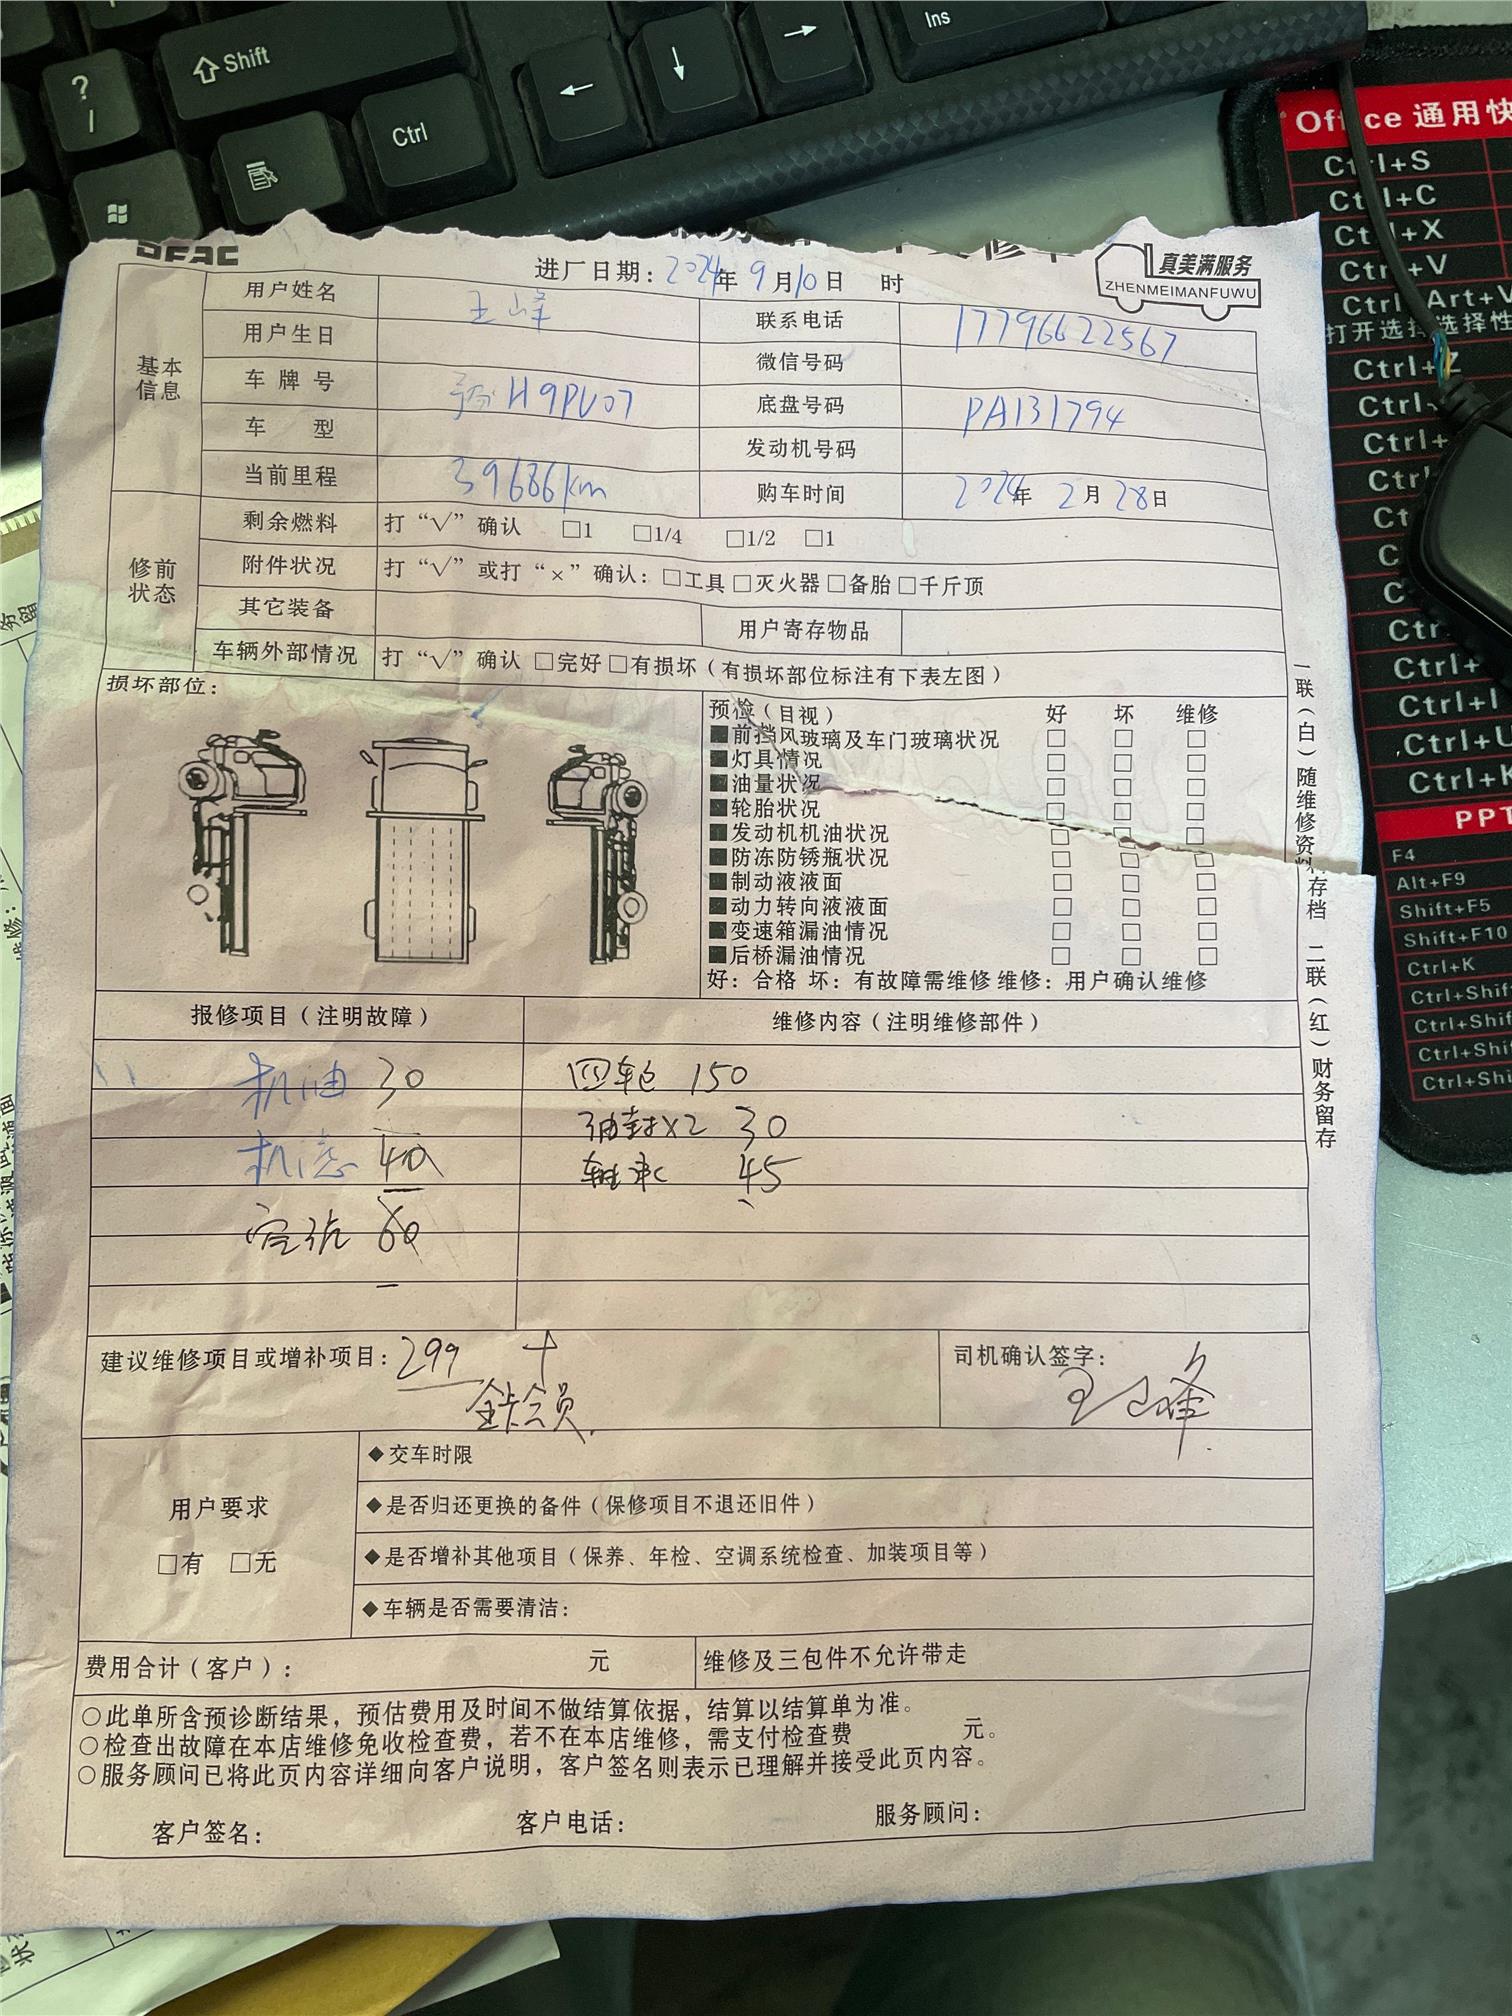 ? /
Shift
Ctrl
Ins
Office 通用快
Ctrl+S
Ctrl+C
Ctrl+X
Ctrl+V
打开选择选择性
PPT
F4
Alt+F9
Shift+F5
Shift+F10
Ctrl+K
进厂日期：2024年 9月10日 时
真美满服务
ZHENMEIMANFUWU
基本信息
用户姓名 王峰 联系电话 17796622567
用户生日 微信号码
车牌号 H9PV07 底盘号码 PA131794
车 型 发动机号码
当前里程 39686km 购车时间 2024年 2月 28日
修前状态
剩余燃料 打“√”确认 □1 □1/4 □1/2 □1
附件状况 打“√”或打“×”确认：□工具□灭火器□备胎□千斤顶
其它装备 用户寄存物品
车辆外部情况 打“√”确认 □完好□有损坏（有损坏部位标注有下表左图）
损坏部位：
预检（目视） 好 坏 维修
■前挡风玻璃及车门玻璃状况 □ □ □
■灯具情况 □ □ □
■油量状况 □ □ □
■轮胎状况 □ □ □
■发动机机油状况 □ □ □
■防冻防锈瓶状况 □ □ □
■制动液液面 □ □ □
■动力转向液液面 □ □ □
■变速箱漏油情况 □ □ □
■后桥漏油情况 □ □ □
好：合格 坏：有故障需维修 维修：用户确认维修
一联（白）随维修资料存档 二联（红）财务留存
报修项目（注明故障） 维修内容（注明维修部件）
机油 30 四轮 150
油封×2 30
机滤 40 轴承 45
60
建议维修项目或增补项目：299 +
金卡会员
司机确认签字：
用户要求
□有 □无
◆交车时限
◆是否归还更换的备件（保修项目不退还旧件）
◆是否增补其他项目（保养、年检、空调系统检查、加装项目等）
◆车辆是否需要清洁：
费用合计（客户）： 元 维修及三包件不允许带走
○此单所含预诊断结果，预估费用及时间不做结算依据，结算以结算单为准。
○检查出故障在本店维修免收检查费，若不在本店维修，需支付检查费 元。
○服务顾问已将此页内容详细向客户说明，客户签名则表示已理解并接受此页内容。
客户签名： 客户电话： 服务顾问：